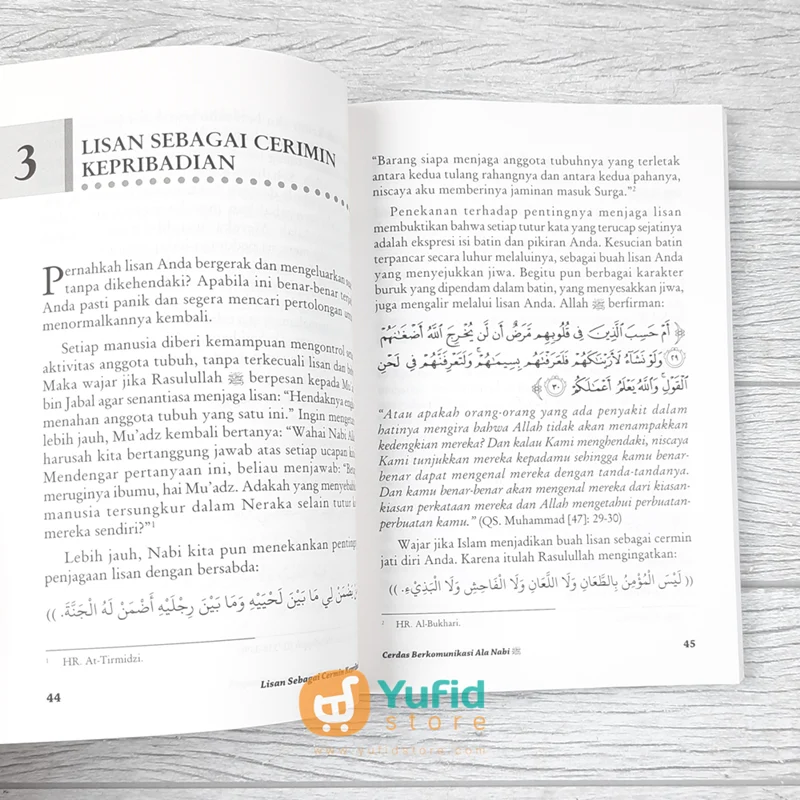 3
LISAN SEBAGAI CERIMIN
KEPRIBADIAN
Pernahkah lisan Anda bergerak dan mengeluarkan
tanpa dikehendaki? Apabila ini benar-benar
Anda pasti panik dan segera mencari pertolongan
menormalkannya kembali.
Setiap manusia diberi kemampuan mengontrol
aktivitas anggota tubuh, tanpa terkecuali lisan dan
Maka wajar jika Rasulullah ﷺ berpesan kepada Mu'
bin Jabal agar senantiasa menjaga lisan: "Hendaknya
menahan anggota tubuh yang satu ini." Ingin
lebih jauh, Mu'adz kembali bertanya: "Wahai Nabi
harusah kita bertanggung jawab atas setiap ucapan
Mendengar pertanyaan ini, beliau menjawab:
meruginya ibumu, hai Mu'adz. Adakah yang
manusia tersungkur dalam Neraka selain tutur
mereka sendiri?"1
Lebih jauh, Nabi kita pun menekankan
penjagaan lisan dengan bersabda:
يَضْمَنْ لِي مَا بَيْنَ لَحْيَيْهِ وَمَا بَيْنَ رِجْلَيْهِ أَضْمَنْ لَهُ الْجَنَّةَ. ))
1 HR. At-Tirmidzi.
44
Lisan Sebagai Cermin
"Barang siapa menjaga anggota tubuhnya yang terletak
antara kedua tulang rahangnya dan antara kedua pahanya,
niscaya aku memberinya jaminan masuk Surga."2
Penekanan terhadap pentingnya menjaga lisan
membuktikan bahwa setiap tutur kata yang terucap sejatinya
adalah ekspresi isi batin dan pikiran Anda. Kesucian batin
terpancar secara luhur melaluinya, sebagai buah lisan Anda
yang menyejukkan jiwa. Begitu pun berbagai karakter
buruk yang dipendam dalam batin, yang menyesakkan jiwa,
juga mengalir melalui lisan Anda. Allah ﷻ berfirman:
﴿ أَمْ حَسِبَ الَّذِينَ فِي قُلُوبِهِم مَّرَضٌ أَن لَّن يُخْرِجَ اللَّهُ أَضْغَانَهُمْ
﴿٢٩﴾ وَلَوْ نَشَاءُ لَأَرَيْنَاكَهُمْ فَلَعَرَفْتَهُم بِسِيمَاهُمْ وَلَتَعْرِفَنَّهُمْ فِي لَحْنِ
الْقَوْلِ وَاللَّهُ يَعْلَمُ أَعْمَالَكُمْ ﴿٣٠﴾ ﴾
"Atau apakah orang-orang yang ada penyakit dalam
hatinya mengira bahwa Allah tidak akan menampakkan
kedengkian mereka? Dan kalau Kami menghendaki, niscaya
Kami tunjukkan mereka kepadamu sehingga kamu benar-
benar dapat mengenal mereka dengan tanda-tandanya.
Dan kamu benar-benar akan mengenal mereka dari kiasan-
kiasan perkataan mereka dan Allah mengetahui perbuatan-
perbuatan kamu." (QS. Muhammad [47]: 29-30)
Wajar jika Islam menjadikan buah lisan sebagai cermin
jati diri Anda. Karena itulah Rasulullah mengingatkan:
(( لَيْسَ الْمُؤْمِنُ بِالطَّعَّانِ وَلَا اللَّعَّانِ وَلَا الْفَاحِشِ وَلَا الْبَذِيْءِ. ))
2 HR. Al-Bukhari.
Cerdas Berkomunikasi Ala Nabi ﷺ
45
Yufid
store
www.yufidstore.com